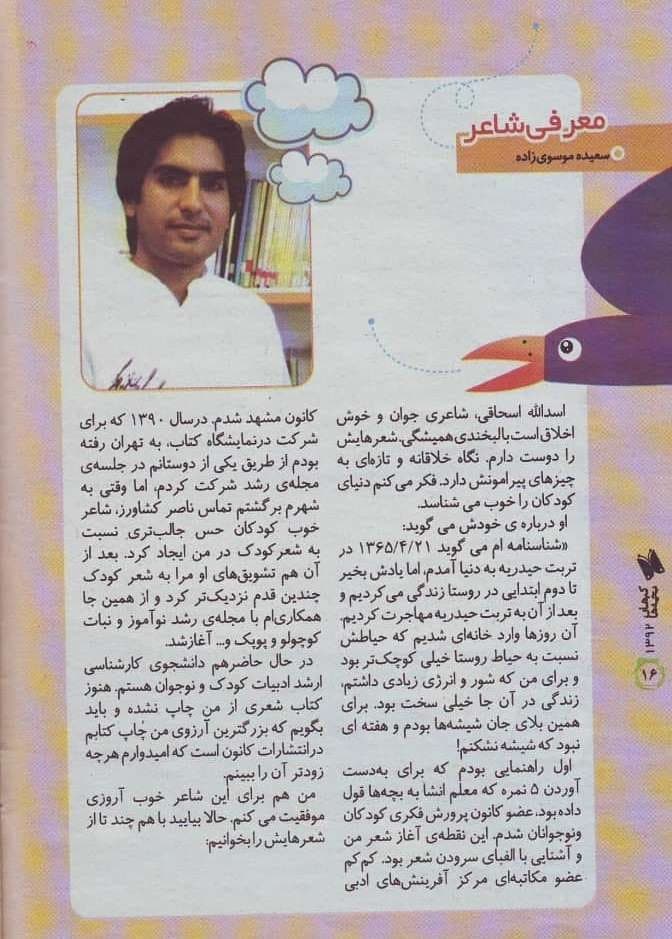 معرفی شاعر
سعیده موسوی‌زاده
اسدالله اسحاقی، شاعری جوان و خوش
اخلاق است با لبخندی همیشگی. شعرهایش
را دوست دارم. نگاه خلاقانه و تازه‌ای به
چیزهای پیرامونش دارد. فکر می کنم دنیای
کودکان را خوب می شناسد.
او درباره ی خودش می گوید:
«شناسنامه ام می گوید ۱۳۶۵/۴/۲۱ در
تربت حیدریه به دنیا آمدم، اما یادش بخیر
تا دوم ابتدایی در روستا زندگی می‌کردیم و
بعد از آن به تربت حیدریه مهاجرت کردیم.
آن روزها وارد خانه‌ای شدیم که حیاطش
نسبت به حیاط روستا خیلی کوچک‌تر بود
و برای من که شور و انرژی زیادی داشتم،
زندگی در آن جا خیلی سخت بود. برای
همین بلای جان شیشه‌ها بودم و هفته ای
نبود که شیشه نشکنم!
اول راهنمایی بودم که برای به‌دست
آوردن ۵ نمره که معلم انشا به بچه‌ها قول
داده بود، عضو کانون پرورش فکری کودکان
ونوجوانان شدم. این نقطه‌ی آغاز شعر من
و آشنایی با الفبای سرودن شعر بود. کم‌کم
عضو مکاتبه‌ای مرکز آفرینش‌های ادبی
کانون مشهد شدم. درسال ۱۳۹۰ که برای
شرکت درنمایشگاه کتاب، به تهران رفته
بودم از طریق یکی از دوستانم در جلسه‌ی
مجله‌ی رشد شرکت کردم، اما وقتی به
شهرم برگشتم تماس ناصر کشاورز، شاعر
خوب کودکان حس جالب‌تری نسبت
به شعرکودک در من ایجاد کرد. بعد از
آن هم تشویق‌های او مرا به شعر کودک
چندین قدم نزدیک‌تر کرد و از همین جا
همکاری‌ام با مجله‌ی رشد نوآموز و نبات
کوچولو و پوپک و... آغازشد.
در حال حاضرهم دانشجوی کارشناسی
ارشد ادبیات کودک و نوجوان هستم. هنوز
کتاب شعری از من چاپ نشده و باید
بگویم که بزرگترین آرزوی من چاپ کتابم
درانتشارات کانون است که امیدوارم هرچه
زودتر آن را ببینم.
من هم برای این شاعر خوب آرزوی
موفقیت می کنم. حالا بیایید با هم چند تا از
شعرهایش را بخوانیم:
کیهان بچه‌ها
۱۳۹۲
۱۶